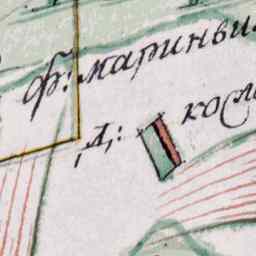 ф: мариньи
Д: косм